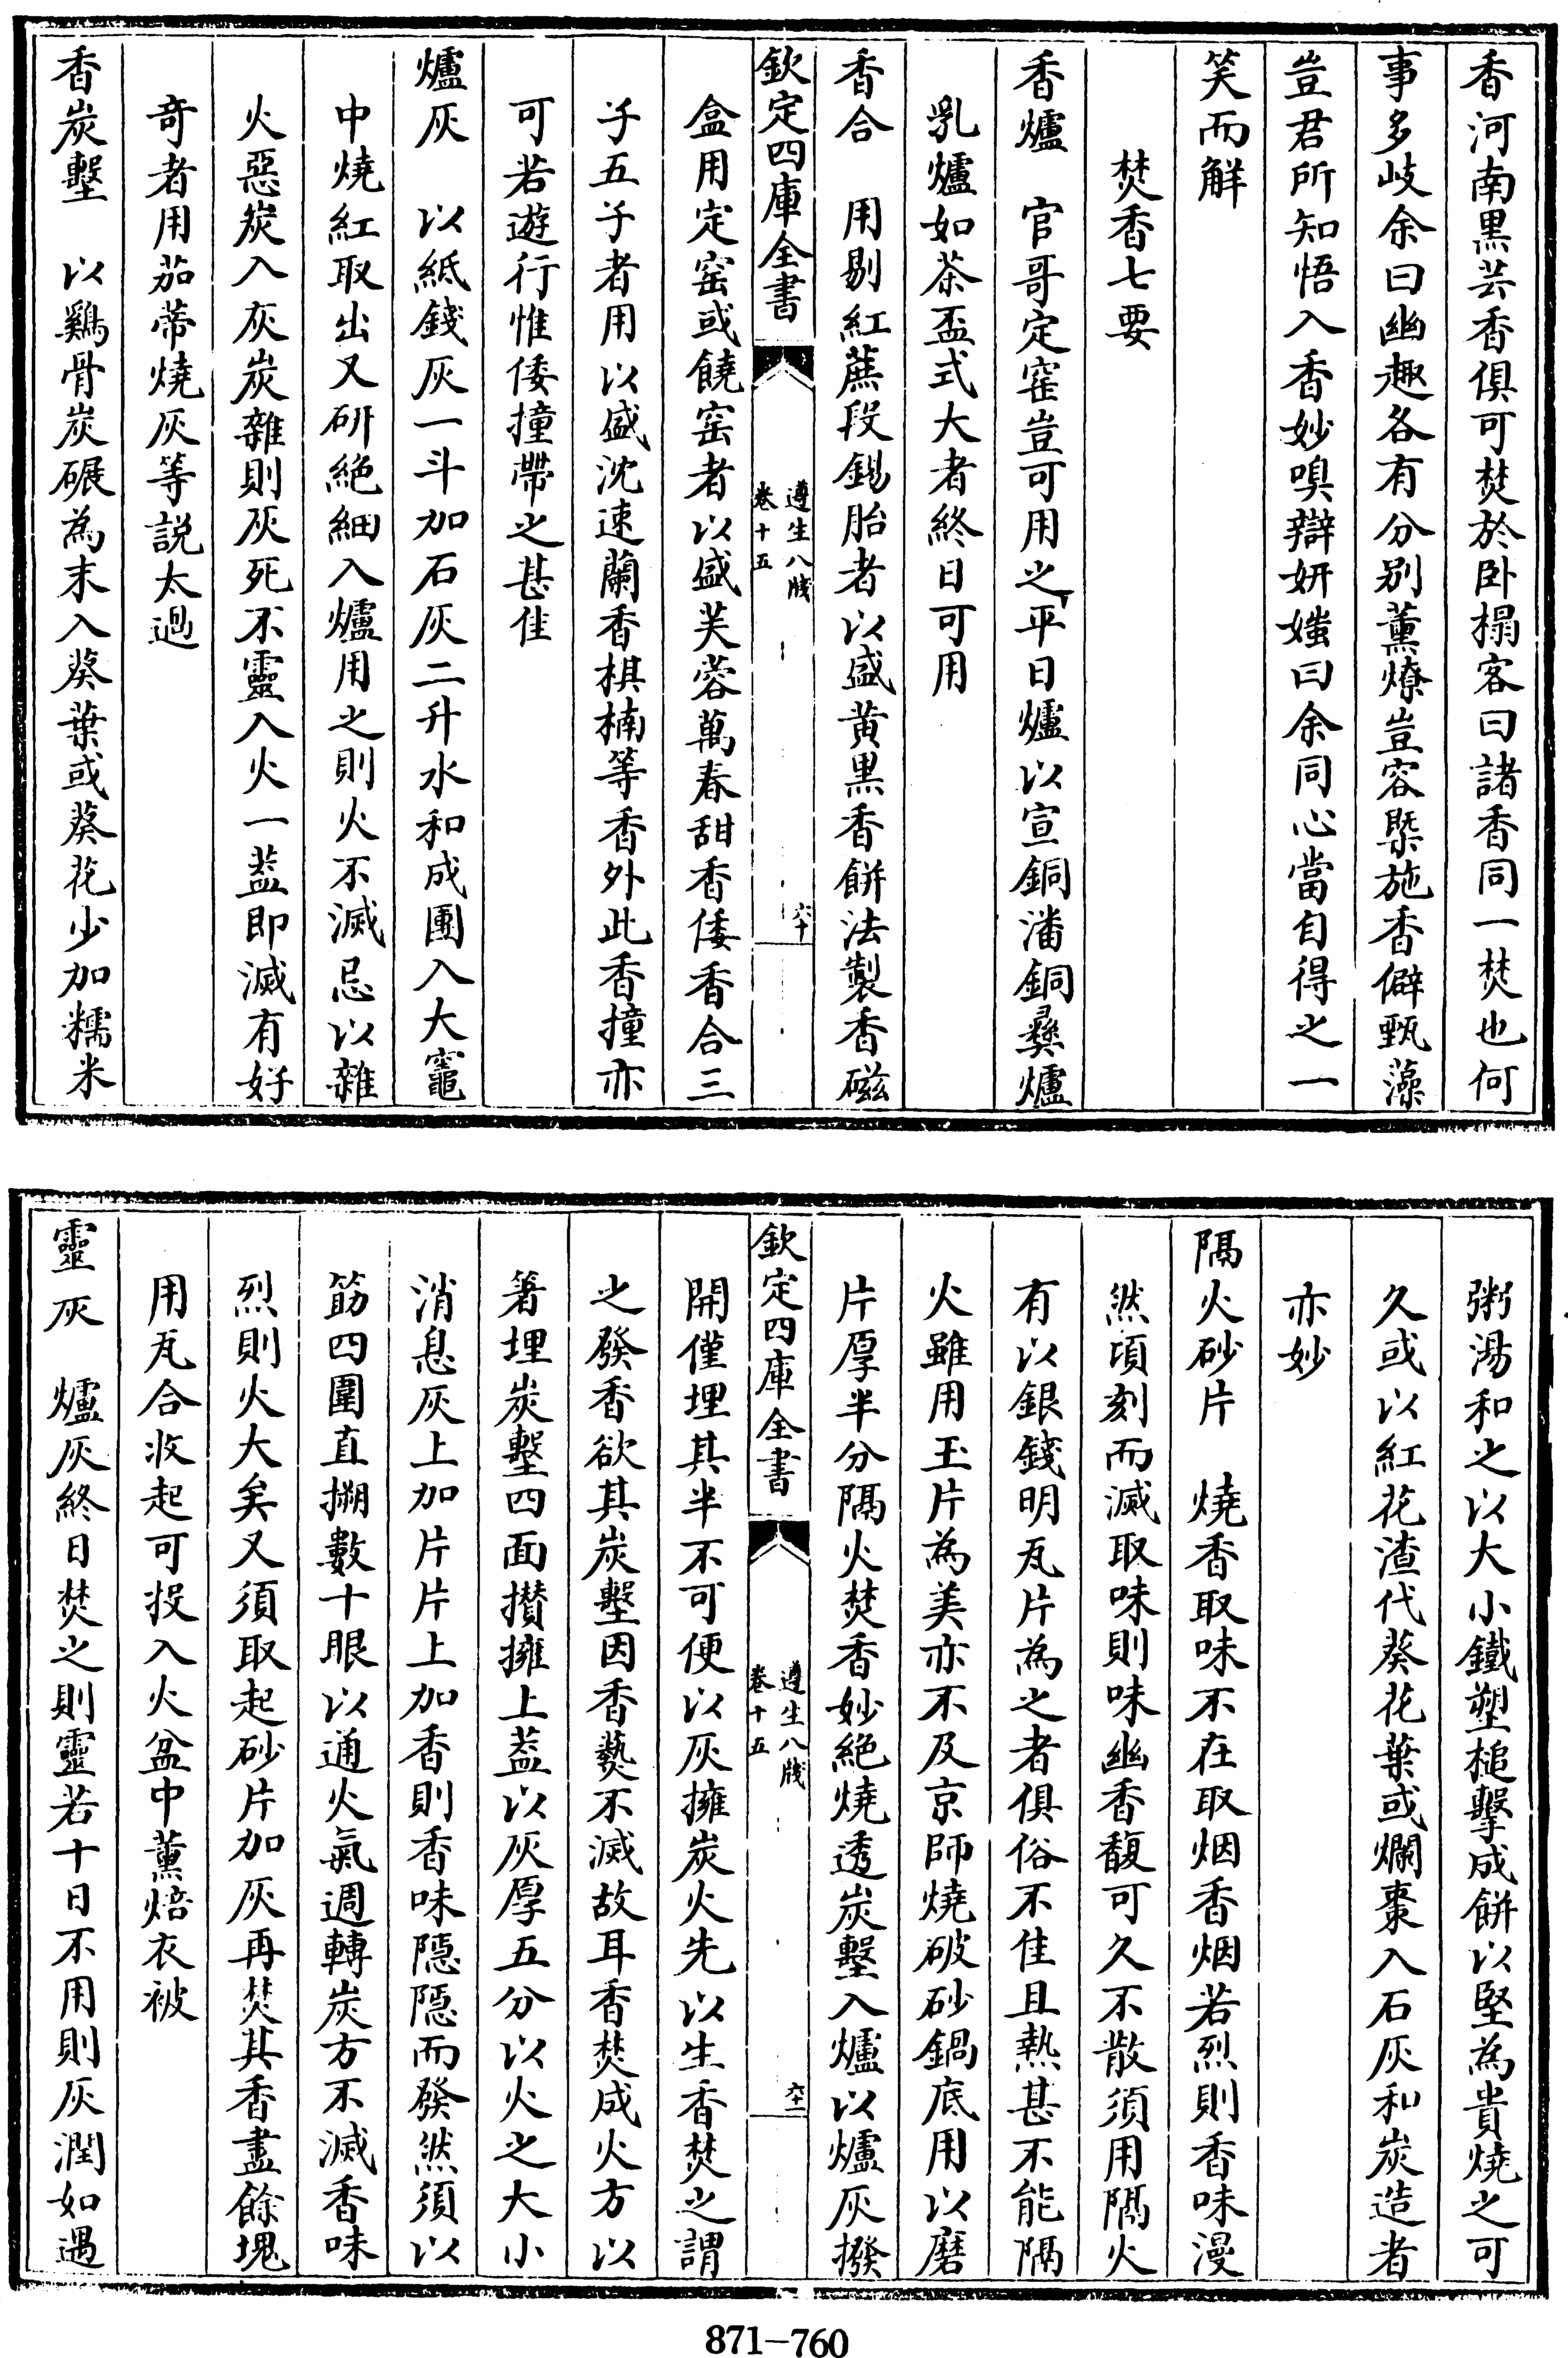 香河南黑芸香俱可焚於卧榻客曰諸香同一焚也何
事多岐余曰幽趣各有分别薰燎豈容槩施香僻甄藻
豈君所知悟入香妙嗅辯妍媸曰余同心當自得之一
笑而解
焚香七要
香爐　官哥定窰豈可用之平日爐以宣銅潘銅彝爐
乳爐如茶盃式大者終日可用
香合　用剔紅蔗段錫胎者以盛黄黑香餅法製香磁
欽定四庫全書
遵生八牋
卷十五
六十
盒用定窑或饒窑者以盛芙蓉萬春甜香倭香合三
子五子者用以盛沈速蘭香棋楠等香外此香撞亦
可若遊行惟倭撞帶之甚佳
爐灰　以紙錢灰一斗加石灰二升水和成團入大竈
中燒紅取出又研絶細入爐用之則火不滅忌以雜
火惡炭入灰炭雜則灰死不靈入火一葢即滅有好
竒者用茄蒂燒灰等説太過
香炭墼　以鷄骨炭碾為末入葵葉或葵花少加糯米
粥湯和之以大小鐵塑槌擊成餅以堅為貴燒之可
久或以紅花渣代葵花葉或爛棗入石灰和炭造者
亦妙
隔火砂片　燒香取味不在取烟香烟若烈則香味漫
然頃刻而滅取味則味幽香馥可久不散須用隔火
有以銀錢明瓦片為之者俱俗不佳且熱甚不能隔
火雖用玉片為美亦不及京師燒破砂鍋底用以磨
片厚半分隔火焚香妙絶燒透炭墼入爐以爐灰撥
欽定四庫全書
遵生八牋
卷十五
六十一
開僅埋其半不可便以灰擁炭火先以生香焚之謂
之發香欲其炭墼因香爇不滅故耳香焚成火方以
箸埋炭墼四面攅擁上葢以灰厚五分以火之大小
消息灰上加片片上加香則香味隱隱而發然須以
筯四圍直搠數十眼以通火氣週轉炭方不滅香味
烈則火大矣又須取起砂片加灰再焚其香盡餘塊
用瓦合收起可投入火盆中薰焙衣被
靈灰　爐灰終日焚之則靈若十日不用則灰潤如遇
871-760